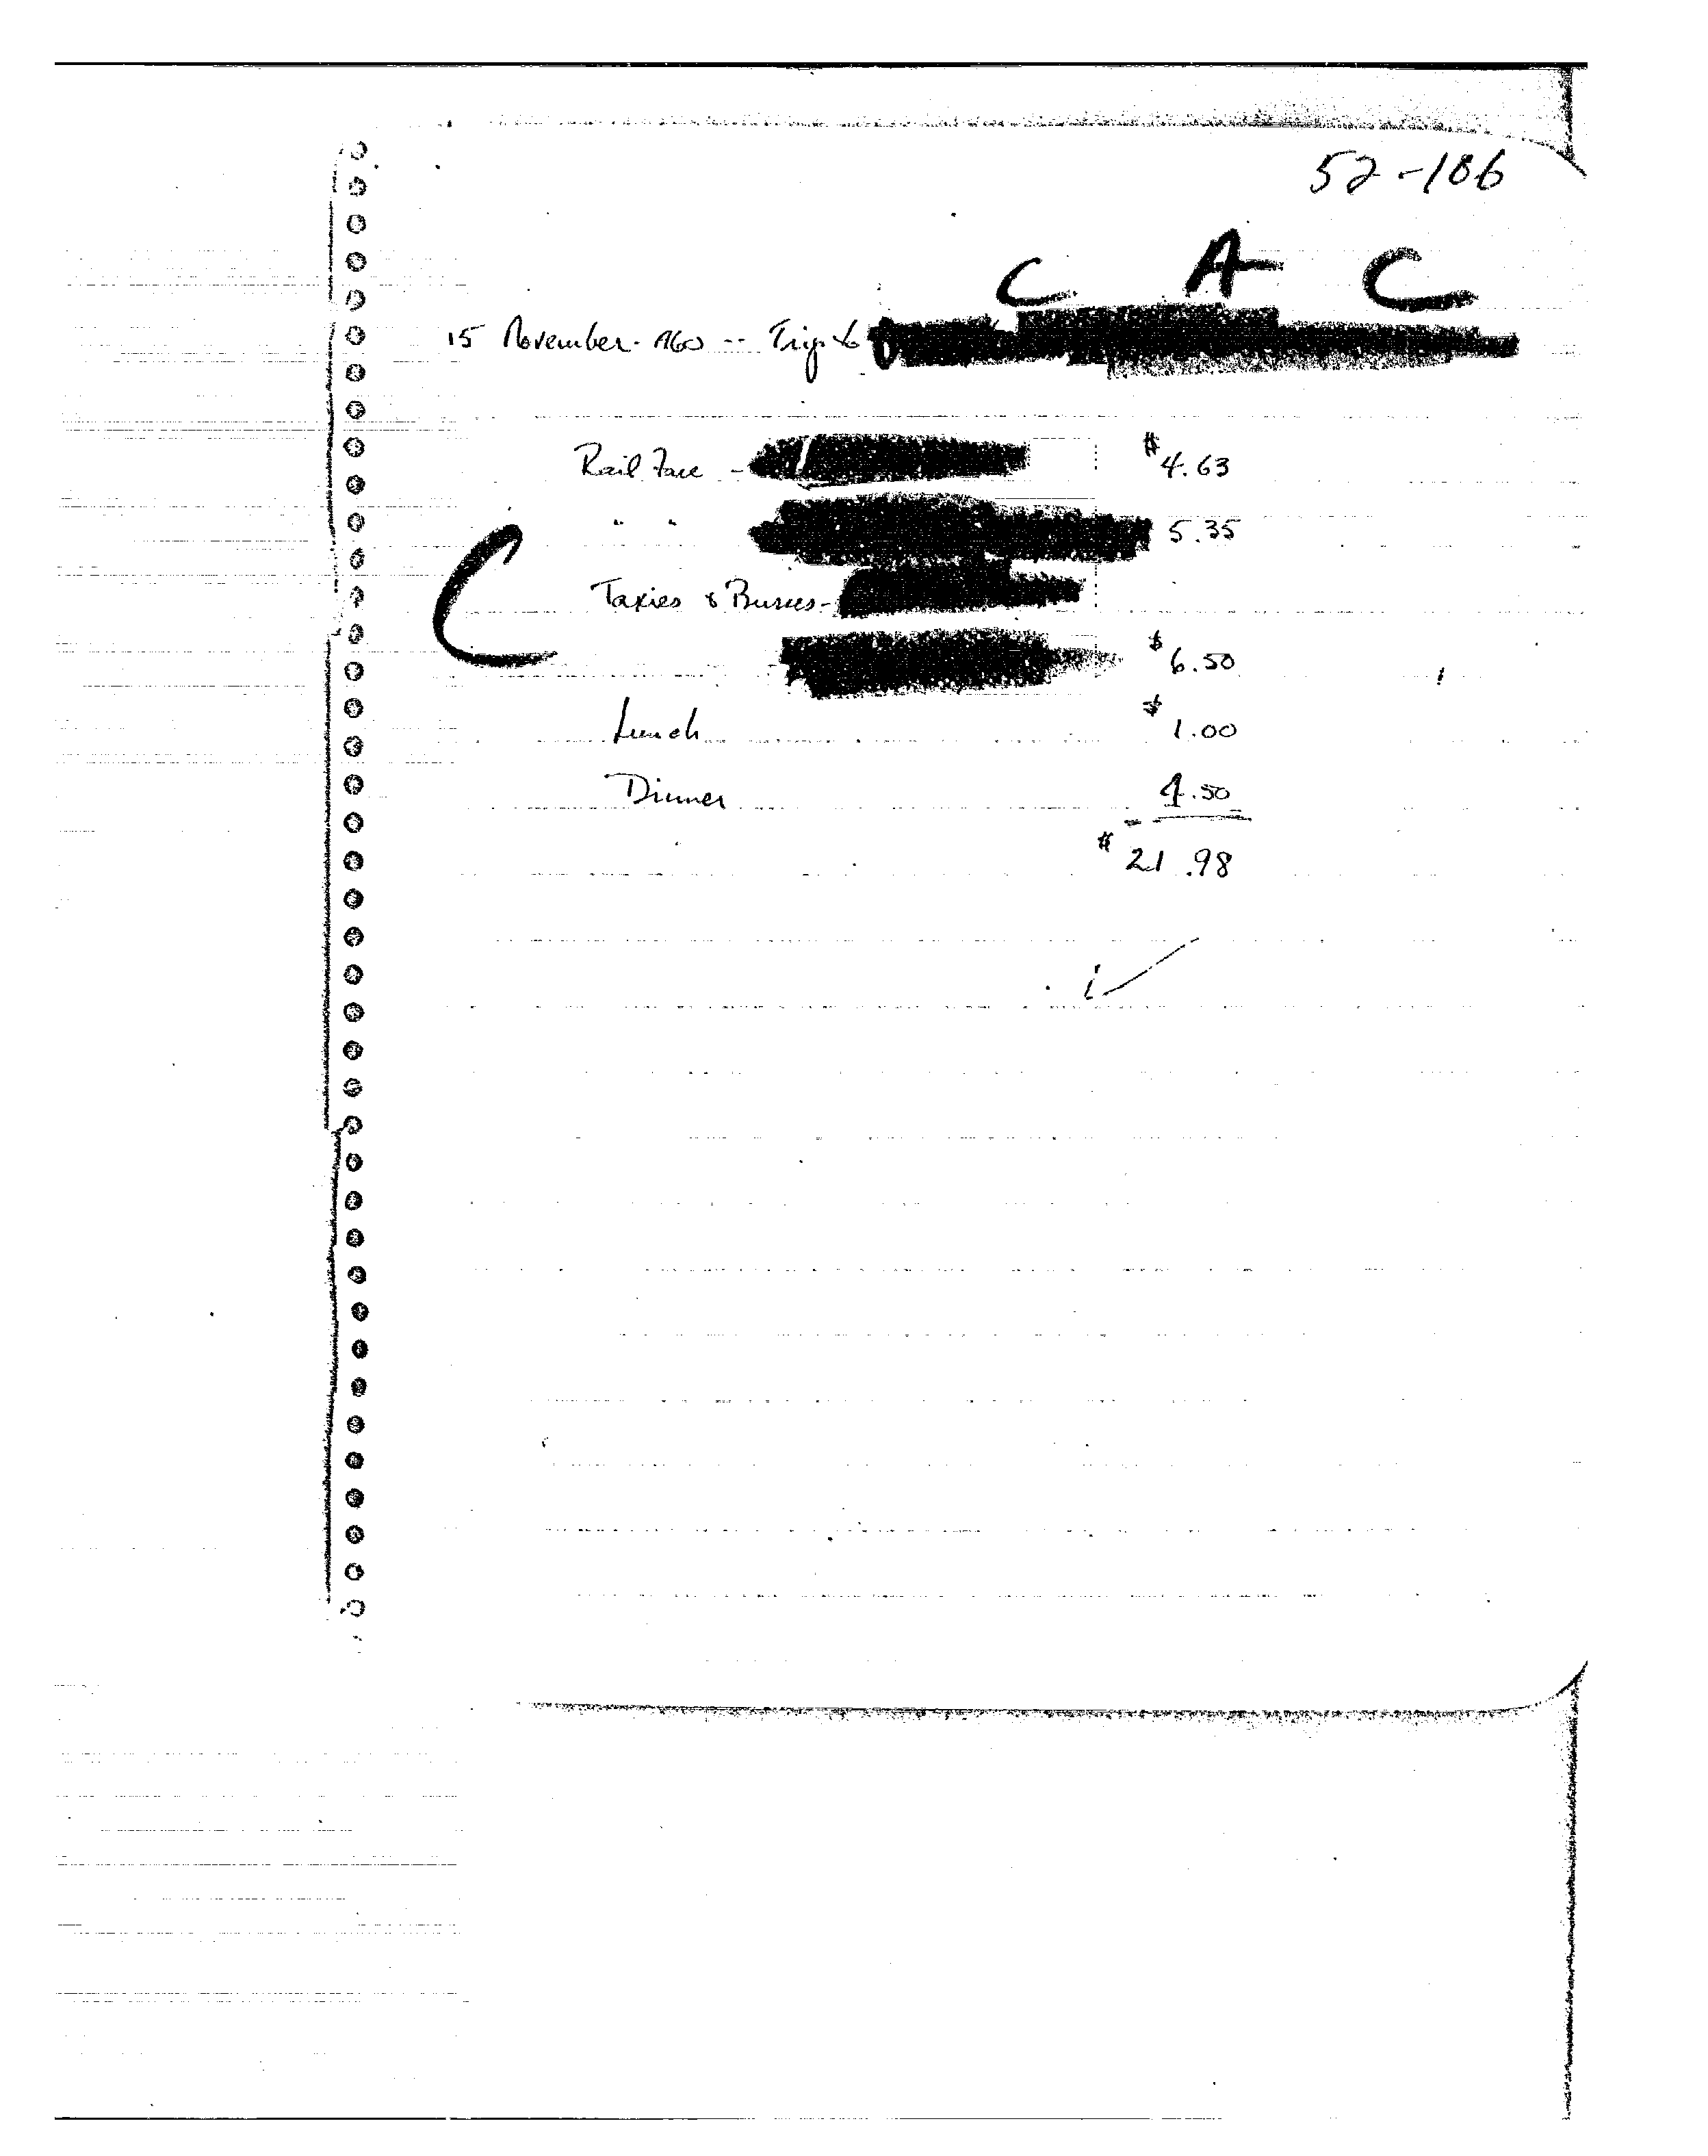 52-186
C A C
15 November 1960 -- Trip to
Rail Fare - $4.63
" " 5.35
C
Taxies & Busses-
$6.50
Lunch $1.00
Dinner 4.50
$21.98